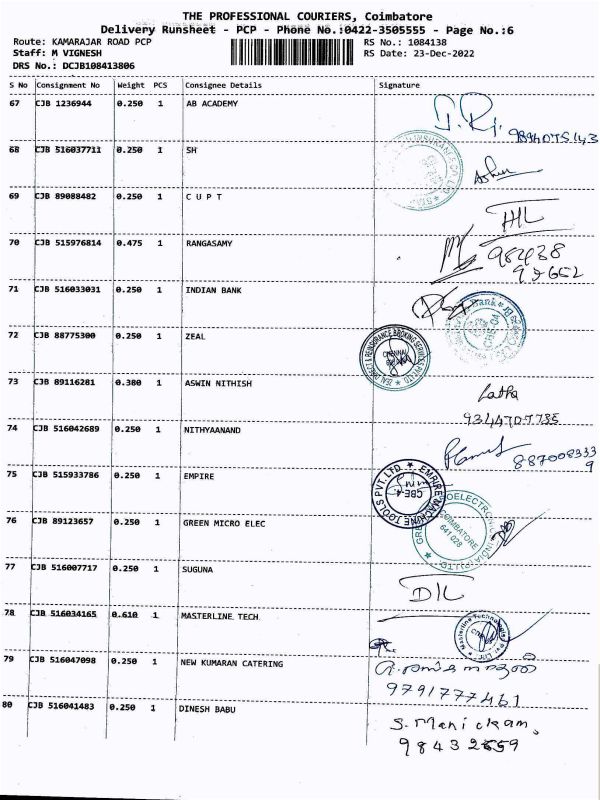 THE PROFESSIONAL COURIERS, Coimbatore
Delivery Runsheet - PCP - Phone No.:0422-3505555 - Page No.:6
Route: KAMARAJAR ROAD PCP
RS No.: 1084138
Staff: M VIGNESH
RS Date: 23-Dec-2022
DRS No.: DCJB108413806
S No Consignment No Weight PCS Consignee Details Signature
67 CJB 1236944 0.250 1 AB ACADEMY
68 CJB 516037711 0.250 1 SH
69 CJB 89088482 0.250 1 C U P T
70 CJB 515976814 0.475 1 RANGASAMY
98438
71 CJB 516033031 0.250 1 INDIAN BANK
72 CJB 88775300 0.250 1 ZEAL
ZEAL DIRECT & REINSURANCE BROKING SERVICE PVT LTD
CHENNAI
73 CJB 89116281 0.380 1 ASWIN NITHISH
Latha
74 CJB 516042689 0.250 1 NITHYAANAND
75 CJB 515933786 0.250 1 EMPIRE
EMPIRE MACHINE TOOLS PVT. LTD.
CBE-4.
76 CJB 89123657 0.250 1 GREEN MICRO ELEC
COIMBATORE
641 028
77 CJB 516007717 0.250 1 SUGUNA
D/L
78 CJB 516034165 0.610 1 MASTERLINE TECH
79 CJB 516047098 0.250 1 NEW KUMARAN CATERING
9791777461
80 CJB 516041483 0.250 1 DINESH BABU
S. Manickam.
98432659